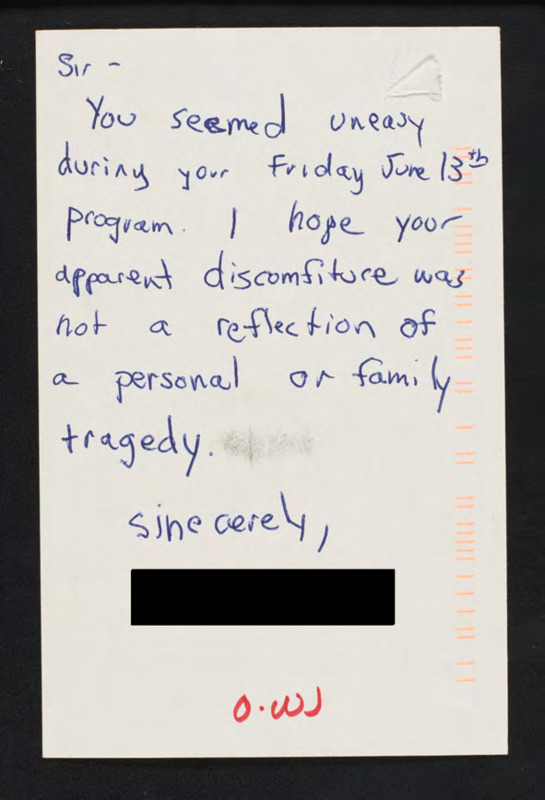 Sir -
You seemed uneasy
during your Friday June 13th
program. I hope your
apparent discomfiture was
not a reflection of
a personal or family
tragedy.
sincerely,